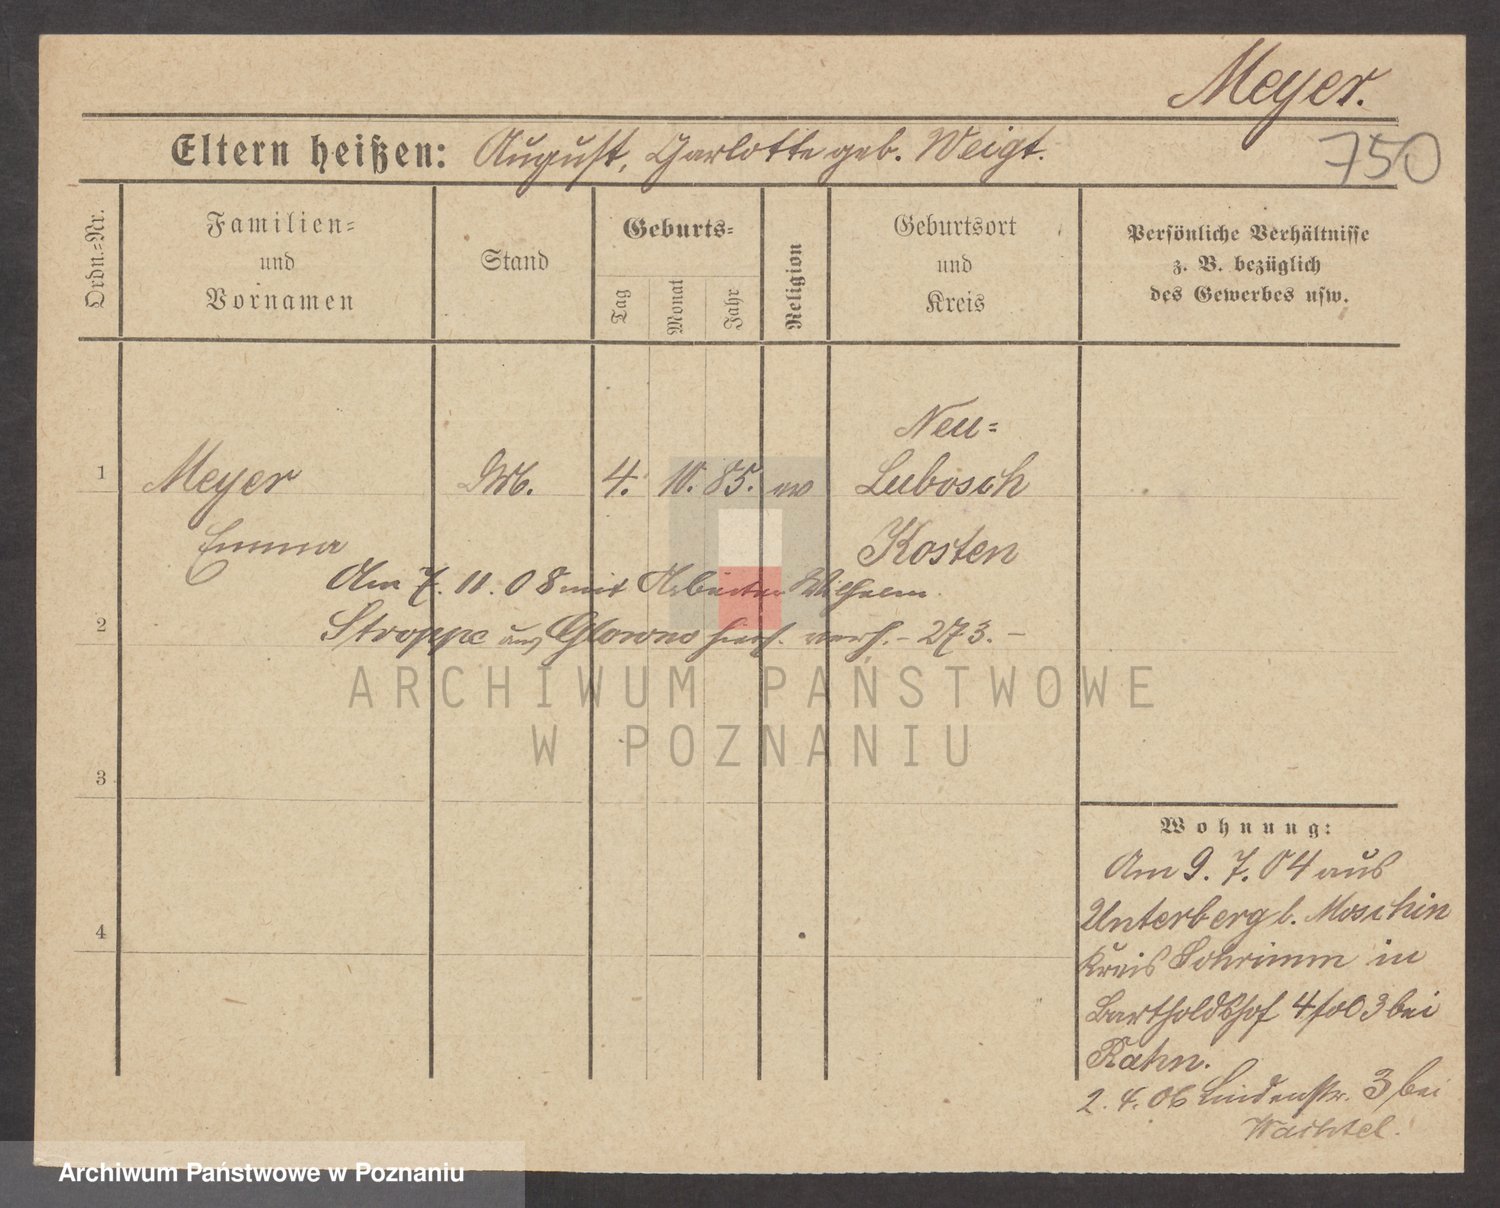 Meyer.
750
Eltern heißen: August, Charlotte geb. Weigt.
Ordn.=Nr.
Familien= und Vornamen
Stand
Geburts=
Tag
Monat
Jahr
Religion
Geburtsort und Kreis
Persönliche Verhältnisse z. B. bezüglich des Gewerbes usw.
Neu=
1 Meyer 4. 10. 85. ev Lubosch
Emma Kosten
Am 7. 11. 08 mit Arbeiter Wilhelm
2 Stroppe aus Glowno hierh. verh. - 273. -
3
4
ARCHIWUM PAŃSTWOWE
W POZNANIU
Wohnung:
Am 9. 7. 04 aus
Unterberg b. Moschin
Kreis Schrimm in
Bartholdshof 4/503 bei
Rahn.
2. 4. 06 Lindenstr. 3 bei
Wachtel.
Archiwum Państwowe w Poznaniu